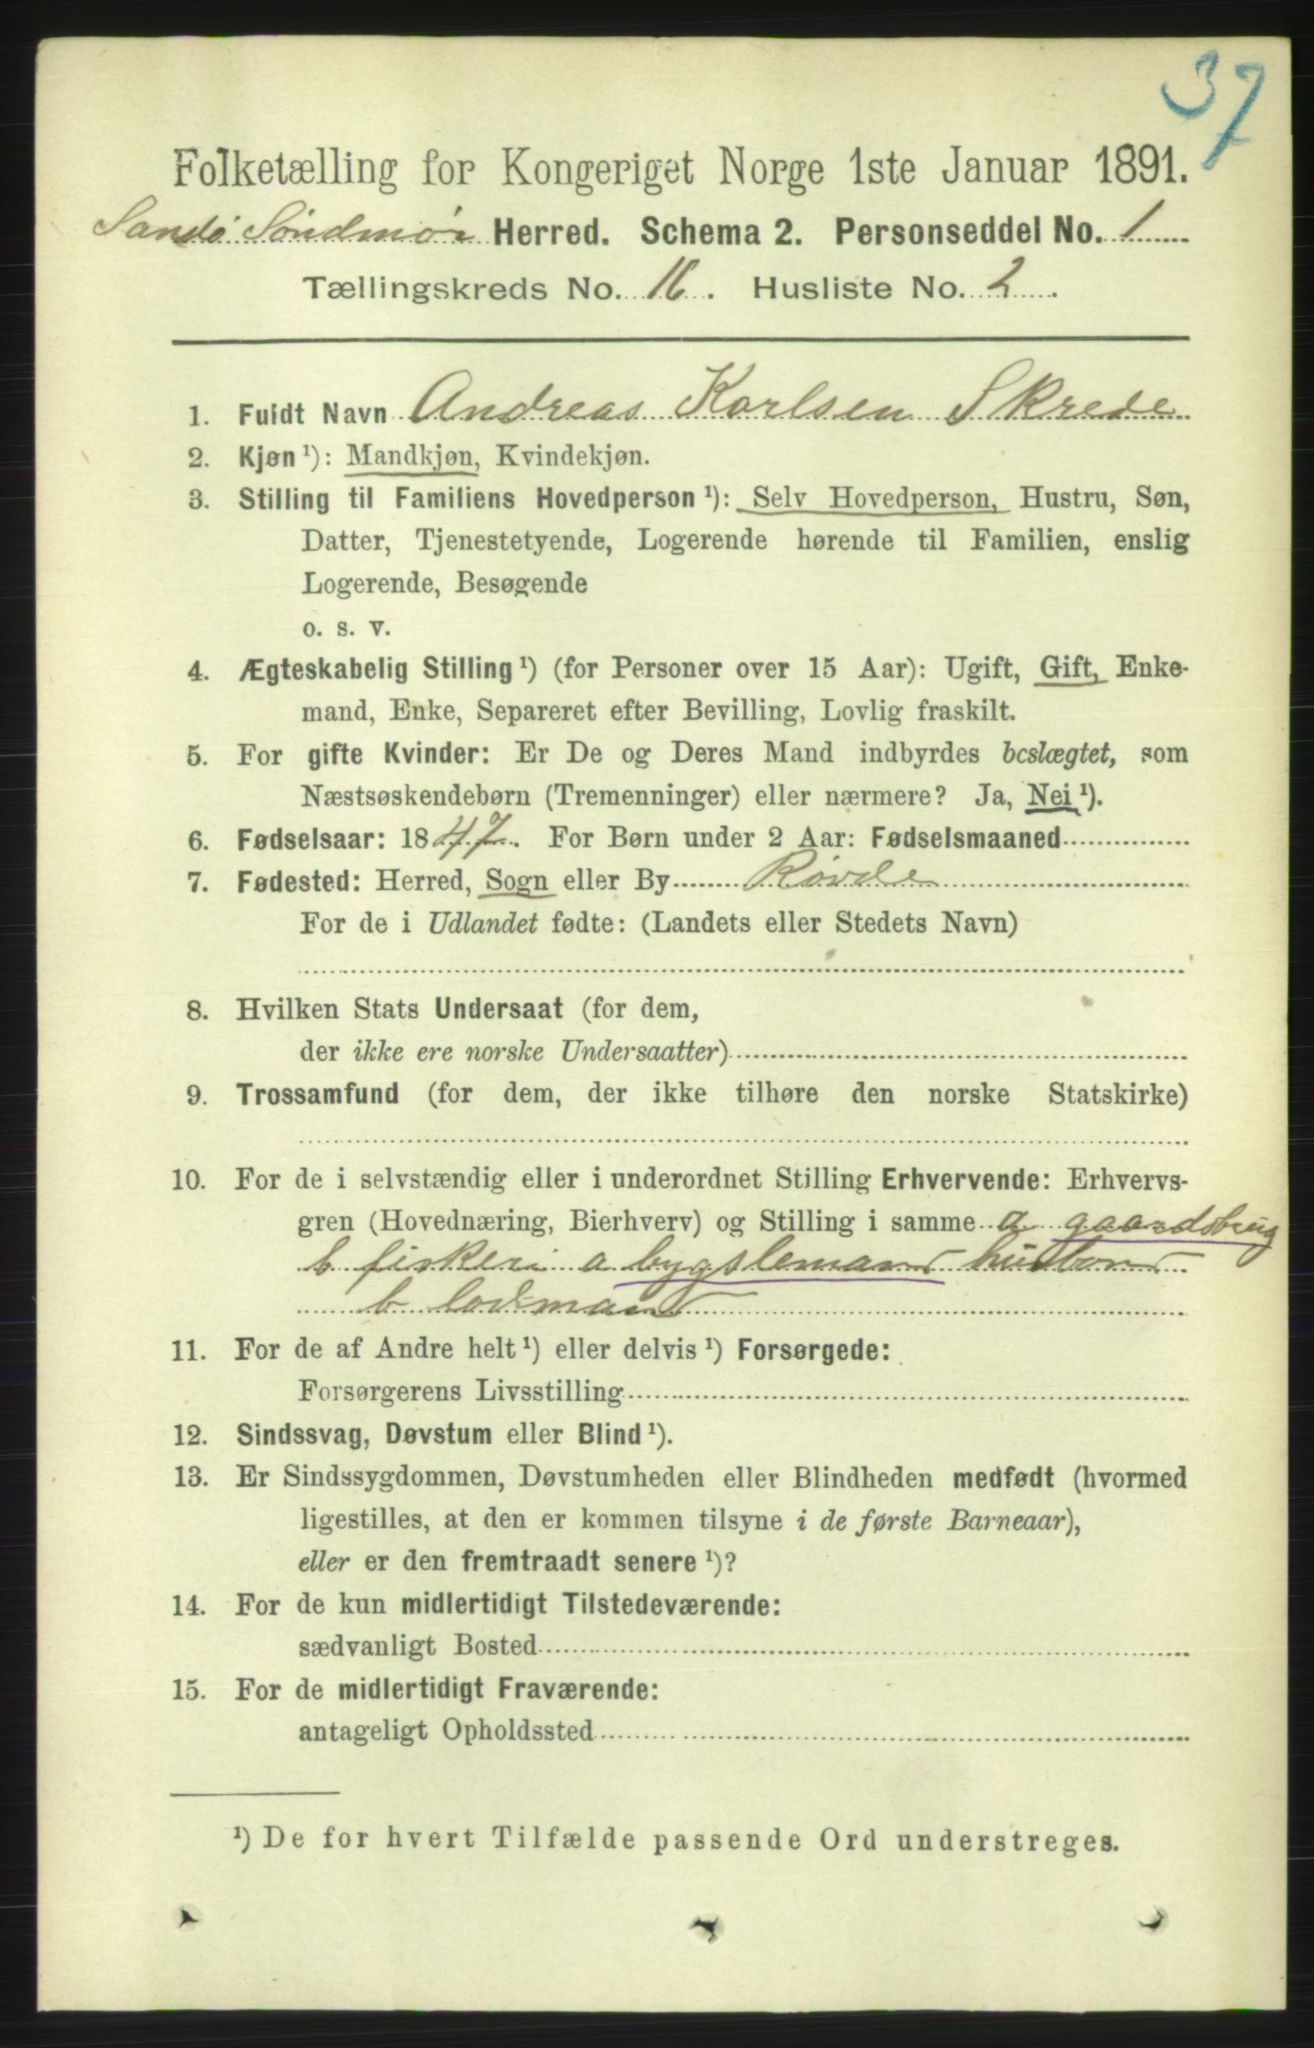 37
Folketælling for Kongeriget Norge 1ste Januar 1891.
Sandö Söndmör Herred. Schema 2. Personseddel No. 1
Tællingskreds No. 16. Husliste No. 2.
1. Fuldt Navn Andreas Karlsen Skrede
2. Kjøn ¹): Mandkjøn, Kvindekjøn.
3. Stilling til Familiens Hovedperson ¹): Selv Hovedperson, Hustru, Søn,
Datter, Tjenestetyende, Logerende hørende til Familien, enslig
Logerende, Besøgende
o. s. v.
4. Ægteskabelig Stilling ¹) (for Personer over 15 Aar): Ugift, Gift, Enke-
mand, Enke, Separeret efter Bevilling, Lovlig fraskilt.
5. For gifte Kvinder: Er De og Deres Mand indbyrdes beslægtet, som
Næstsøskendebørn (Tremenninger) eller nærmere? Ja, Nei ¹).
6. Fødselsaar: 1847. For Børn under 2 Aar: Fødselsmaaned
7. Fødested: Herred, Sogn eller By Rövde
For de i Udlandet fødte: (Landets eller Stedets Navn)
8. Hvilken Stats Undersaat (for dem,
der ikke ere norske Undersaatter)
9. Trossamfund (for dem, der ikke tilhøre den norske Statskirke)
10. For de i selvstændig eller i underordnet Stilling Erhvervende: Erhvervs-
gren (Hovednæring, Bierhverv) og Stilling i samme a gaardsbrug
b fiskeri a bygslemand
b lodmand
11. For de af Andre helt ¹) eller delvis ¹) Forsørgede:
Forsørgerens Livsstilling
12. Sindssvag, Døvstum eller Blind ¹).
13. Er Sindssygdommen, Døvstumheden eller Blindheden medfødt (hvormed
ligestilles, at den er kommen tilsyne i de første Barneaar),
eller er den fremtraadt senere ¹)?
14. For de kun midlertidigt Tilstedeværende:
sædvanligt Bosted
15. For de midlertidigt Fraværende:
antageligt Opholdssted
¹) De for hvert Tilfælde passende Ord understreges.